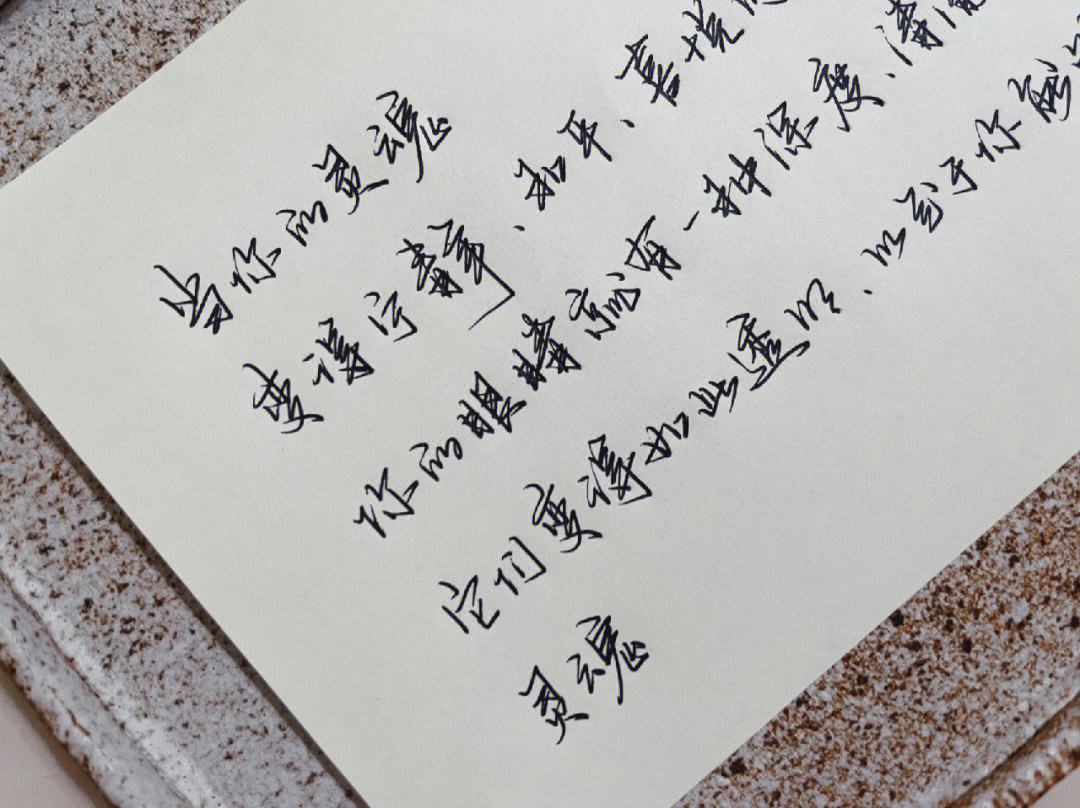 当你的灵魂
变得宁静、和平、喜悦
你的眼睛就有一种深度、清
它们变得如此透明、以至于你能
灵魂